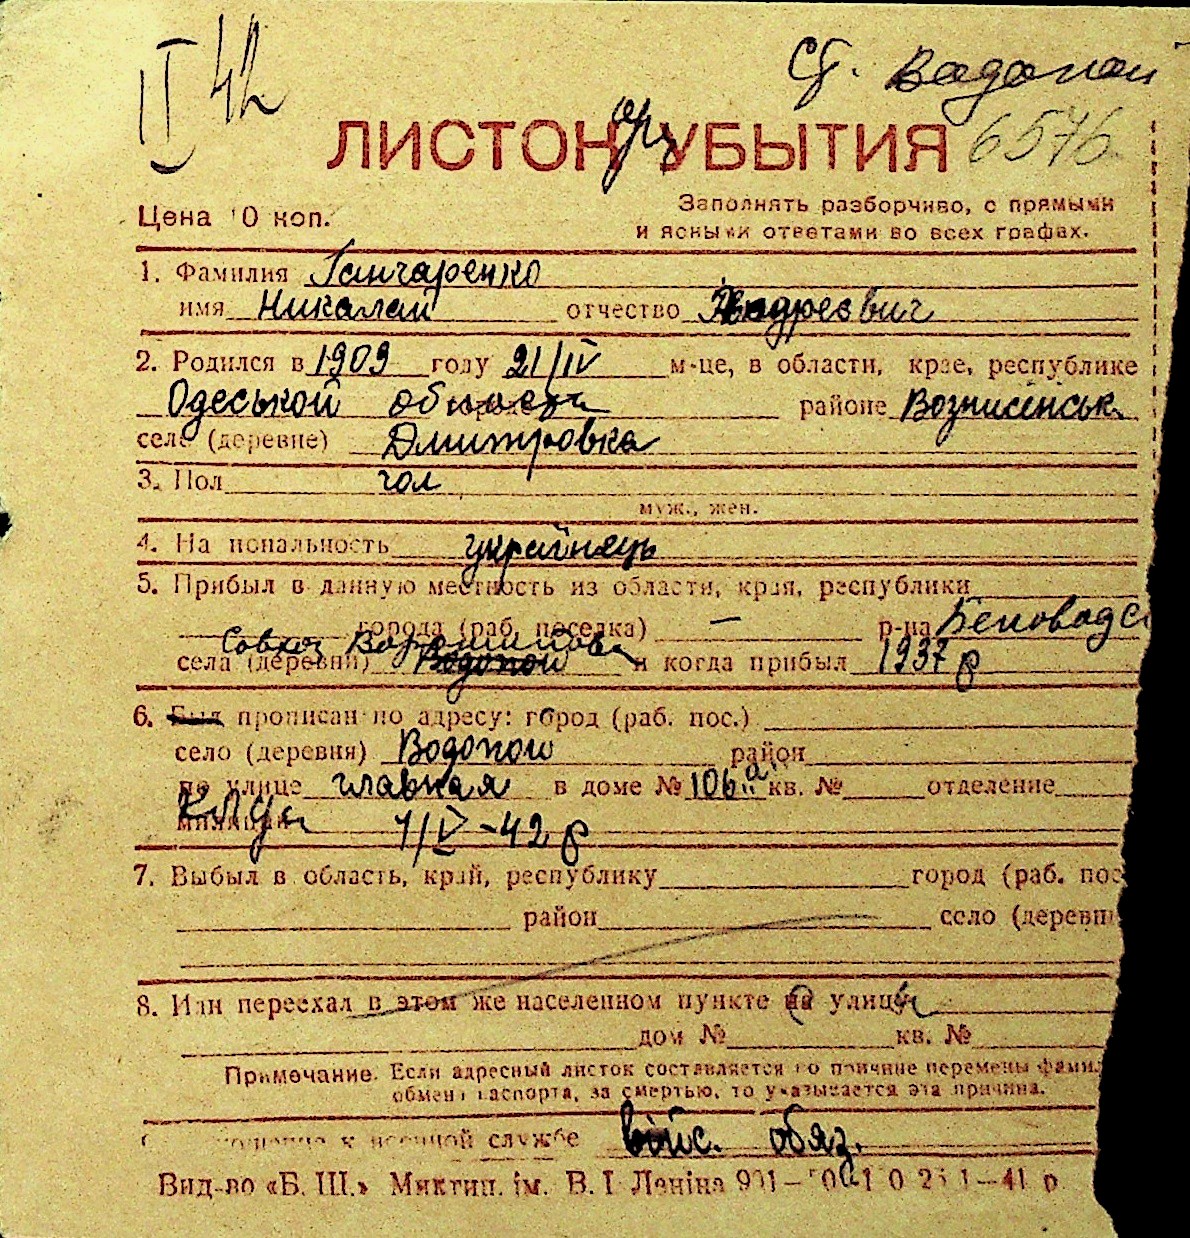 II 42
ст. Водопой
ЛИСТОК УБЫТИЯ 6576
Цена 10 коп.
Заполнять разборчиво, с прямыми
и ясными ответами во всех графах.
1. Фамилия Ганчаренко
имя Никалай отчество Андреевич
2. Родился в 1909 году 21/IV м-це, в области, крае, республике
Одеськой области районе Вознисенськ
села (деревне) Дмитровка
3. Пол чол
муж., жен.
4. Национальность українець
5. Прибыл в данную местность из области, края, республики
города (раб. поселка) — р-на
Совхоз
села (деревни) Водопой и когда прибыл 1937 р
6. Был прописан по адресу: город (раб. пос.)
село (деревня) Водопой район
по улице главная в доме № 106а кв. № отделение
милиции 1/V-42 р
7. Выбыл в область, край, республику город (раб. пос
район село (деревн
8. Или переехал в этом же населенном пункте на улицу
дом № кв. №
Примечание. Если адресный листок составляется по причине перемены фамил
обмена паспорта, за смертью, то указывается эта причина.
к военной службе війс. обяз.
Вид-во «Б. Ш.» Миктип. ім. В. І Леніна